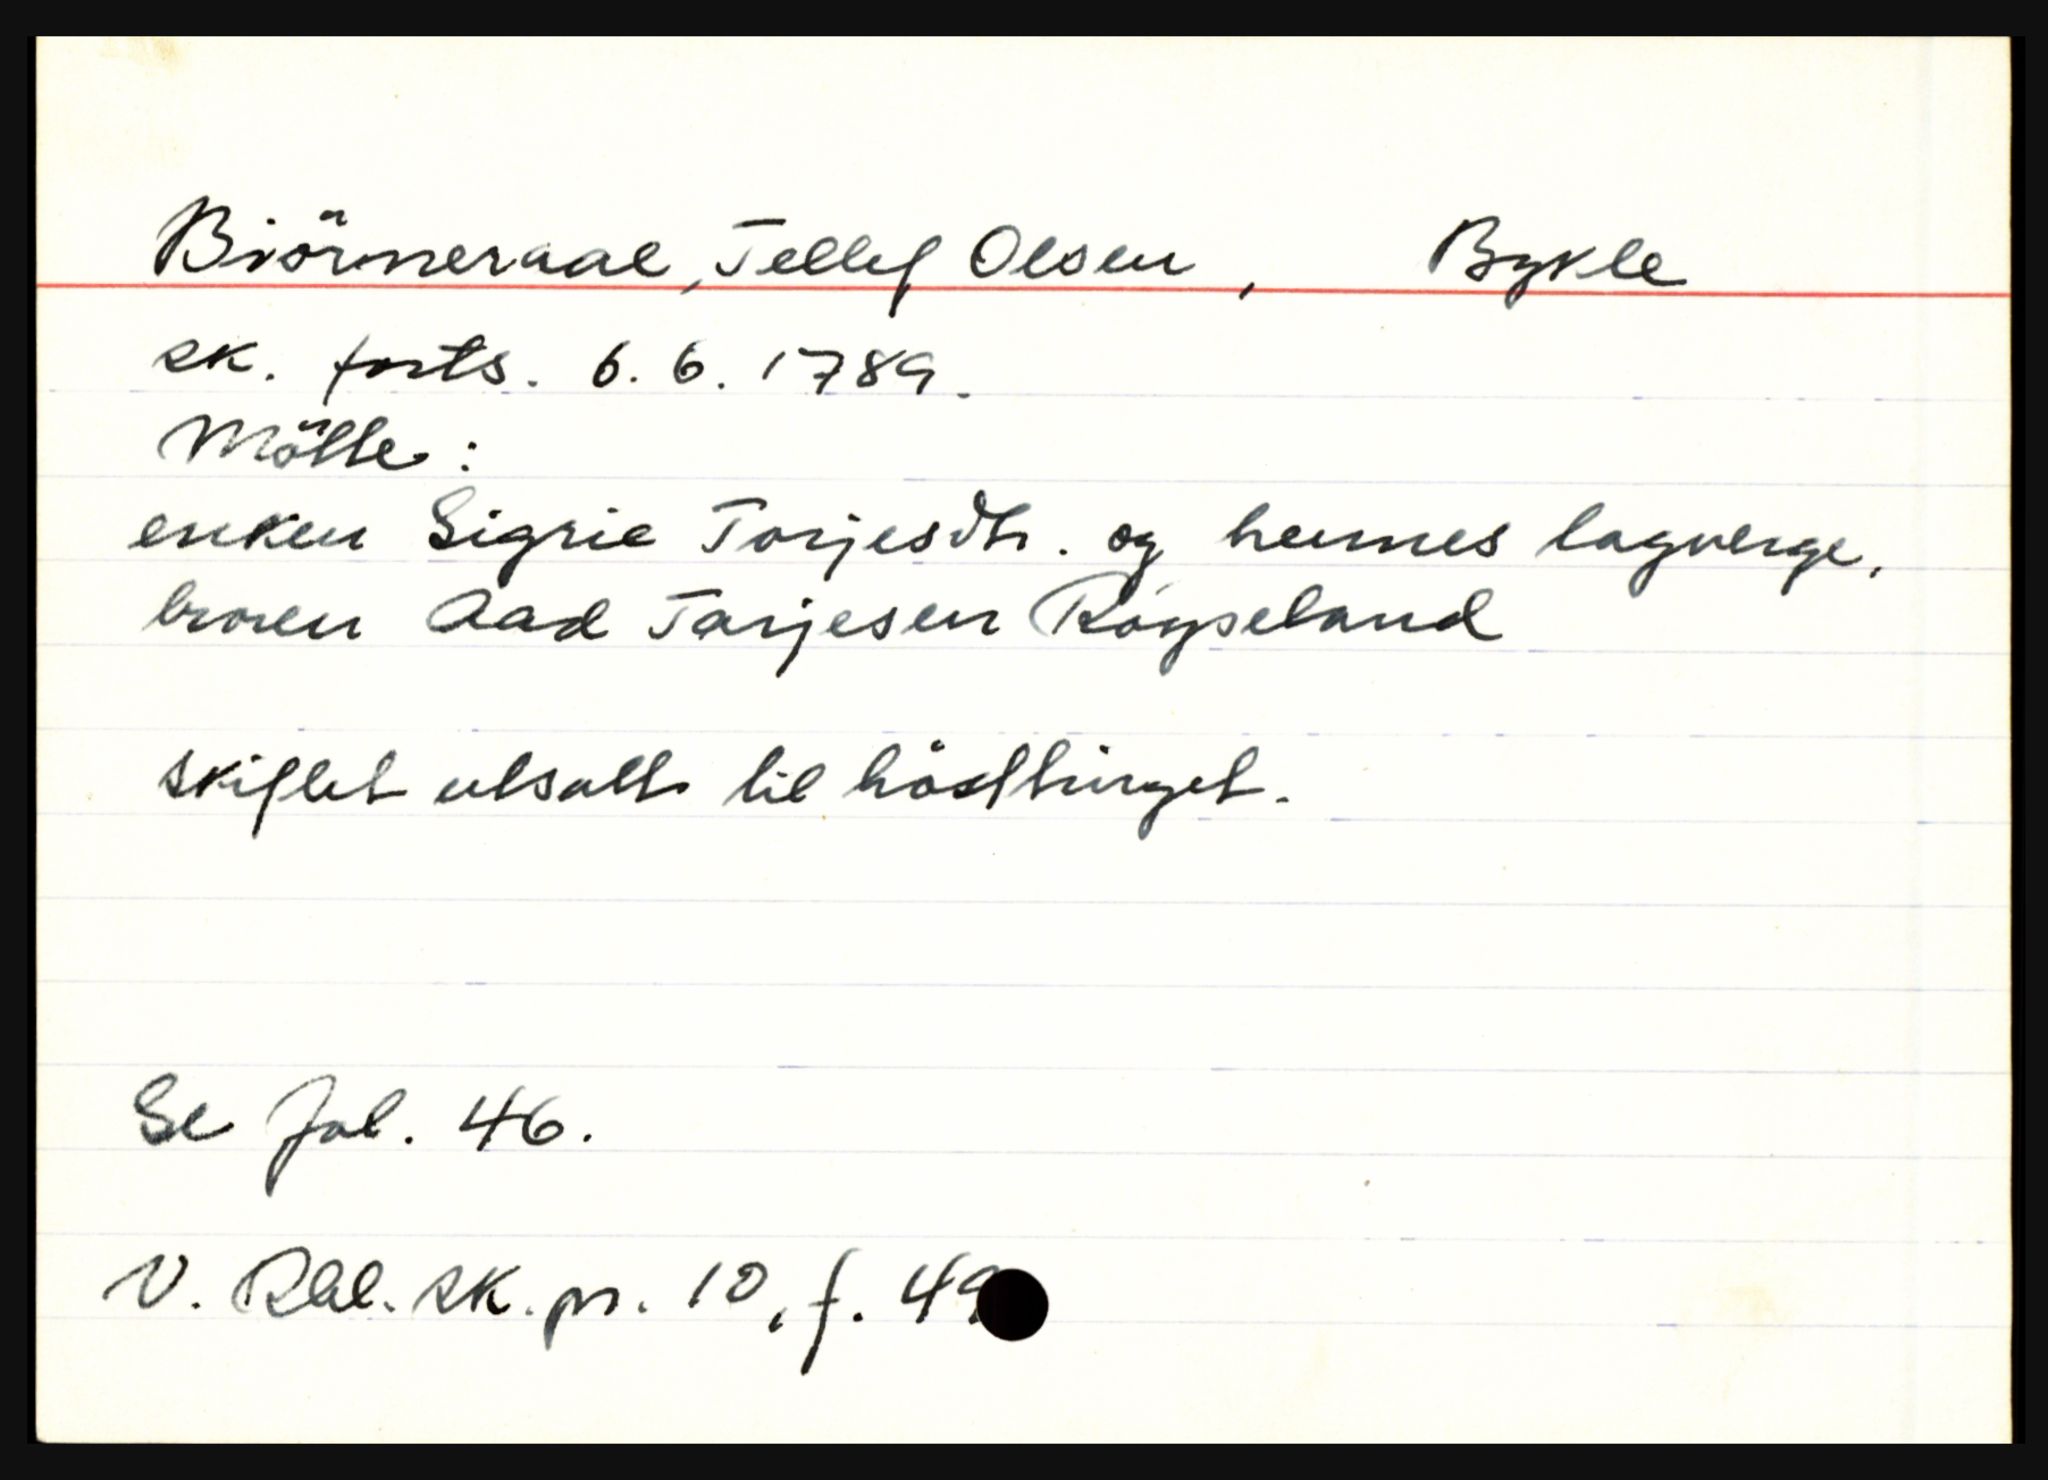 Biörneraae, Tellef Olsen, Bykle
sk. forts. 6.6.1789.
Mötte:
enken Sigrie Torjesdtr. og hennes lagverge,
broren Aad Tarjesen Røyseland
skiftet utsatt til hösttinget.
Se fol. 46.
V. Rbl. sk. pr. 10, f. 49